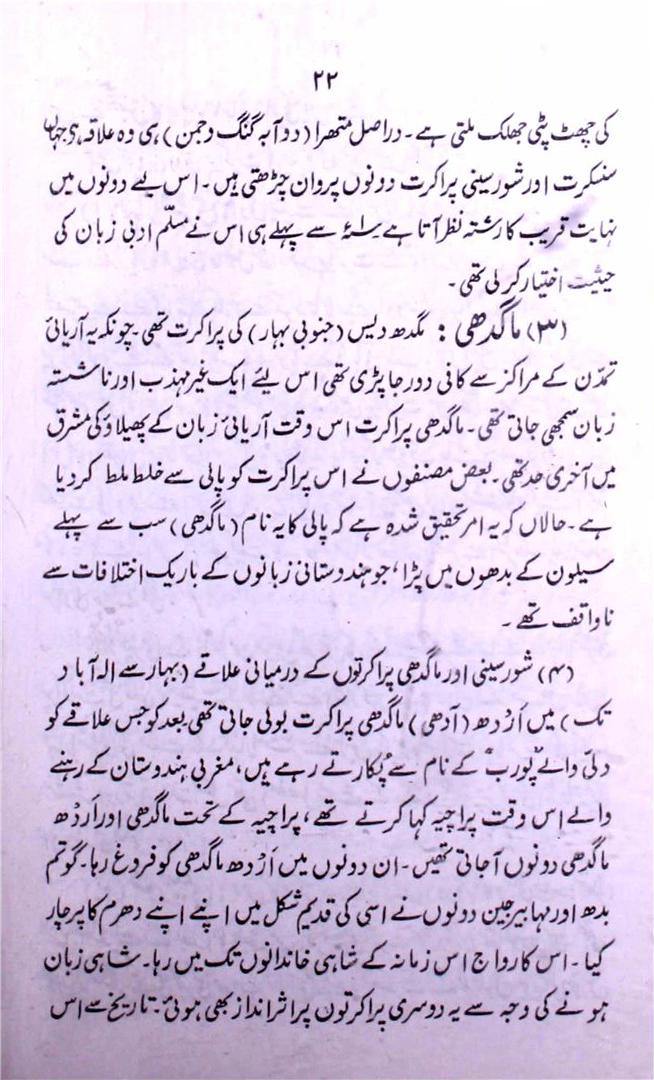 ۲۲
کی چھٹ پٹی جھلک ملتی ہے۔ دراصل متھرا (دوآبہ گنگ وجمن) ہی وہ علاقہ ہی جہاں
سنسکرت اور شورسینی پراکرت دونوں پروان چڑھتی ہیں۔ اس لیے دونوں میں
نہایت قریب کا رشتہ نظر آتا ہے سے پہلے ہی اس نے مسلّم ادبی زبان کی
حیثیت اختیار کر لی تھی۔
(۳) ماگدھی : مگدھ دیس (جنوبی بہار) کی پراکرت تھی۔ چونکہ یہ آریائی
تمدّن کے مراکز سے کافی دور جا پڑی تھی اس لئے ایک غیر مہذب اور ناشستہ
زبان سمجھی جاتی تھی۔ ماگدھی پراکرت اس وقت آریائی زبان کے پھیلاؤ کی مشرق
میں آخری حد تھی۔ بعض مصنفوں نے اس پراکرت کو پالی سے خلط ملط کردیا
ہے۔ حالاں کہ یہ امر تحقیق شدہ ہے کہ پالی کا یہ نام (ماگدھی) سب سے پہلے
سیلون کے بدھوں میں پڑا، جو ہندوستانی زبانوں کے باریک اختلافات سے
ناواقف تھے۔
(۴) شورسینی اور ماگدھی پراکرتوں کے درمیانی علاقے (بہار سے الہ آباد
تک) میں اَرْدھ (آدھی) ماگدھی پراکرت بولی جاتی تھی بعد کو جس علاقے کو
دلی والے "پورب" کے نام سے پکارتے رہے ہیں، مغربی ہندوستان کے رہنے
والے اس وقت پراچیہ کہا کرتے تھے، پراچیہ کے تحت ماگدھی اور اَرْدھ
ماگدھی دونوں آجاتی تھیں۔ ان دونوں میں اَرْدھ ماگدھی کو فروغ رہا۔ گوتم
بدھ اور مہابیر جین دونوں نے اسی کی قدیم شکل میں اپنے اپنے دھرم کا پرچار
کیا۔ اس کا رواج اس زمانہ کے شاہی خاندانوں تک میں رہا۔ شاہی زبان
ہونے کی وجہ سے یہ دوسری پراکرتوں پر اثر انداز بھی ہوئی۔ تاریخ سے اس